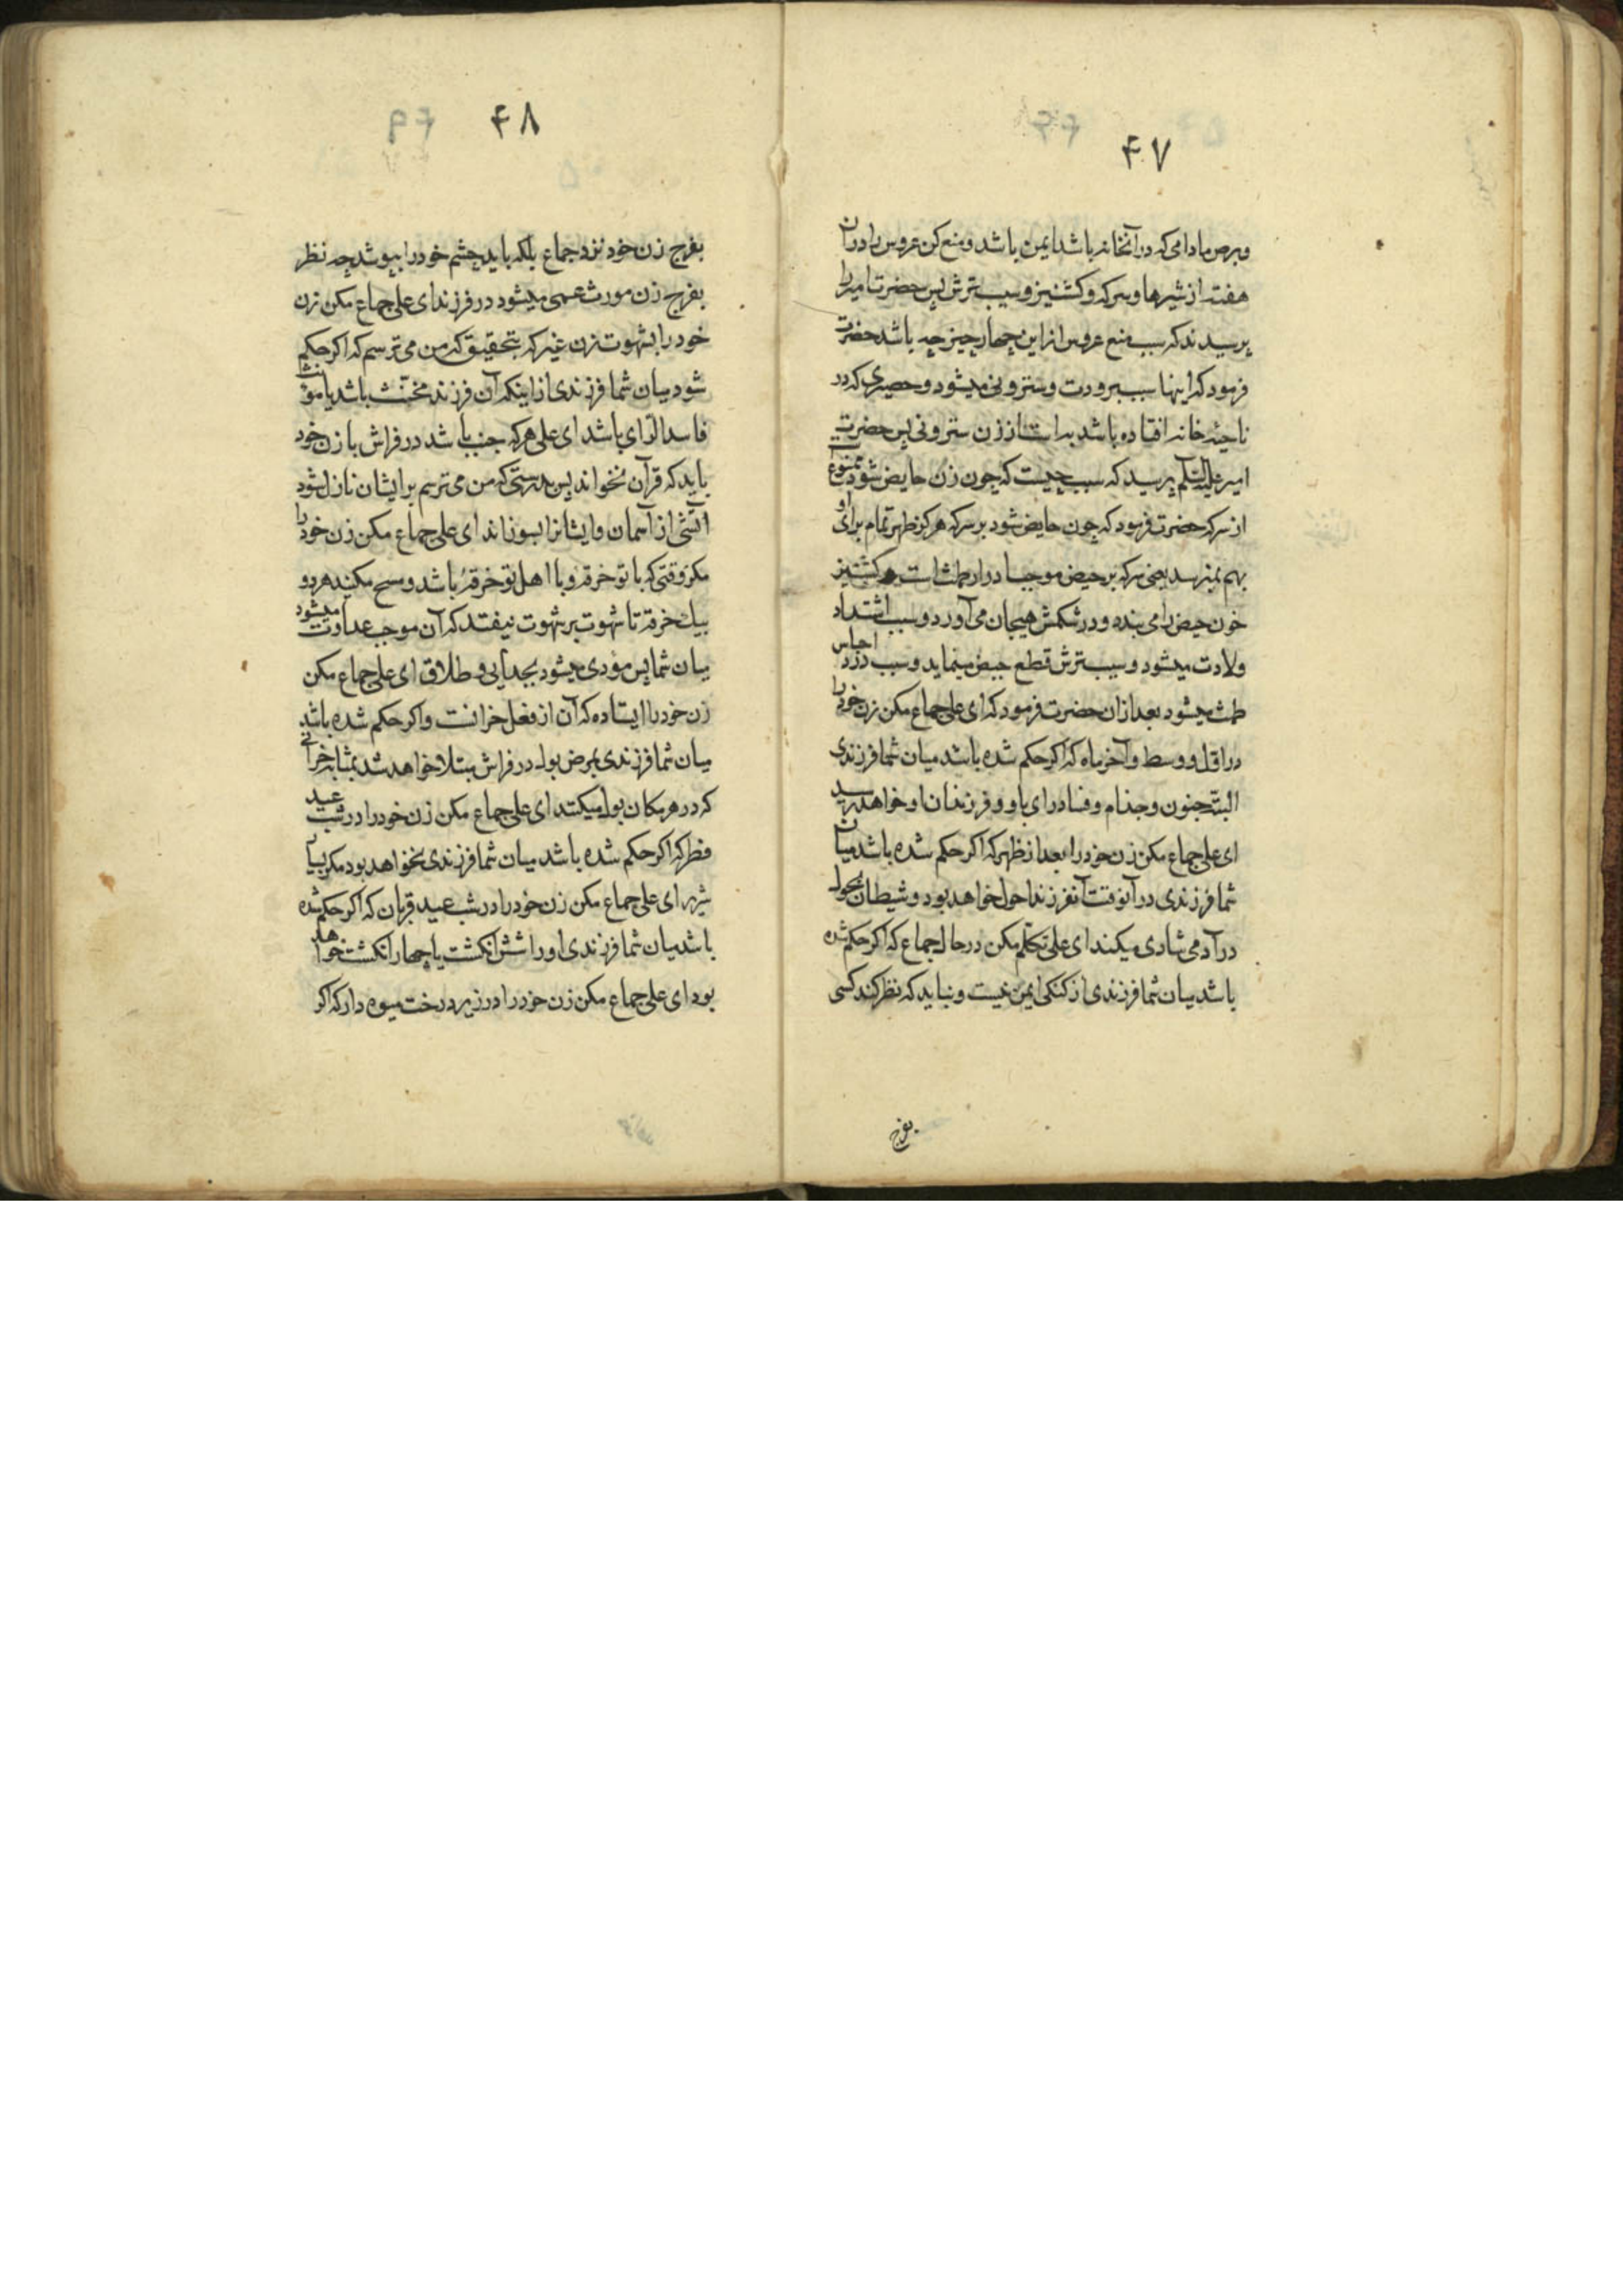 ۴۷
وبرص مادامی که در آنخانه باشد ایمن باشد ومنع کن عروس را در ان
هفته از شیرها وسرکه وکشنیز وسیب ترش پس حضرت امیر را
پرسیدند که سبب منع عروس از این چهار چیز چه باشد حضرت
فرمود که اینها سبب برودت وسترونی میشود وحصیری که در
ناحیه خانه افتاده باشد به است از زن سترونی پس حضرت
امیر علیه السلم پرسید که سبب چیست که چون زن حایض شود ممنوع است
از سرکه حضرت فرمود که چون حایض شود بر سرکه هرکز طهر تمام برای او
بهم نمیرسد یعنی سرکه بر حیض موجب ادرار طمث است و کشنیز
خون حیض را می بندد ودر شکمش هیجان می آورد وسبب اشتداد
ولادت میشود وسیب ترش قطع حیض مینماید وسبب احتباس
طمث میشود بعد از ان حضرت فرمود که ای علی جماع مکن زن خود را
در اوّل ووسط وآخر ماه که اکر حکم شده باشد میان شما فرزندی
البته جنون وجذام وفساد رای باو وفرزندان او خواهد رسید
ای علی جماع مکن زن خود را بعد از ظهر که اکر حکم شده باشد میان
شما فرزندی در آنوقت آنفرزند احول خواهد بود وشیطان بحول
در آدمی شادی میکند ای علی تکلّم مکن در حال جماع که اکر حکم شده
باشد میان شما فرزندی از کنکی ایمن نیست ونباید که نظر کند کسی
بفرج
۴۸
بفرج زن خود نزد جماع بلکه باید چشم خود را بپوشد چه نظر
بفرج زن مورث عمی میشود در فرزند ای علی جماع مکن زن
خود را بشهوت زن غیر که بتحقیق که من می ترسم که اکر حکم
شود میان شما فرزندی از اینکه آن فرزند مخنّث باشد یا مؤنث
فاسد الرّای باشد ای علی هرکه جنب باشد در فراش با زن خود
باید که قرآن نخواند پس بدرستی که من می ترسم بر ایشان نازل شود
آتشی از آسمان وایشانرا بسوزاند ای علی جماع مکن زن خود را
مکر وقتی که با تو خرقه وبا اهل تو خرقه باشد ومسح مکنید هر دو
بیک خرقه تا شهوت بر شهوت نیفتد که آن موجب عداوت میشود
میان شما پس مؤدی میشود بجدایی وطلاق ای علی جماع مکن
زن خود را ایستاده که آن از فعل خرانست واکر حکم شده باشد
میان شما فرزندی بمرض بول در فراش مبتلا خواهد شد بمثابه خرانی
که در هر مکان بول میکنند ای علی جماع مکن زن خود را در شب عید
فطر که اکر حکم شده باشد میان شما فرزندی نخواهد بود مکر بسیار
شریر ای علی جماع مکن زن خود را در شب عید قربان که اکر حکم شده
باشد میان شما فرزندی او را شش انکشت یا چهار انکشت خواهد
بود ای علی جماع مکن زن خود را در زیر درخت میوه دار که اکر